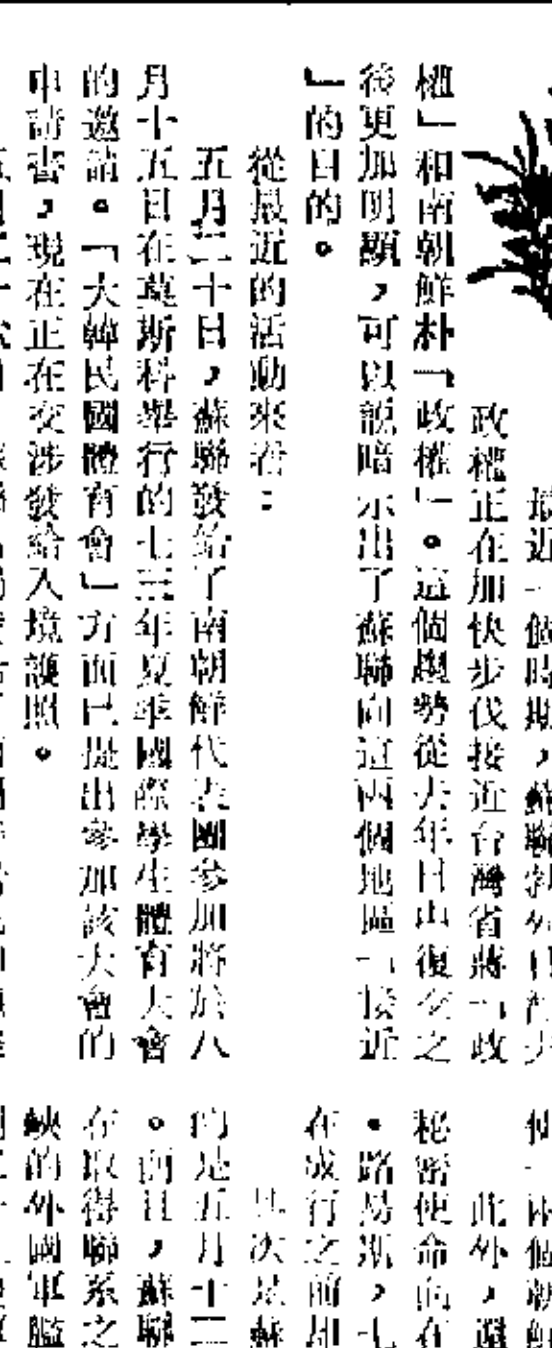 最近一個時期，蘇聯
政權正在加快步伐接近台灣省蔣「政
權」和南朝鮮朴「政權」。這個趨勢從去年日中復交之
後更加明顯，可以說暗示出了蘇聯向這兩個地區「接近
」的目的。
從最近的活動來看：
五月二十日，蘇聯發給了南朝鮮代表團參加將於八
月十五日在莫斯科舉行的七三年夏季國際學生體育大會
的邀請。「大韓民國體育會」方面已提出參加該大會的
申請書，現在正在交涉發給入境護照。
此外，還
秘密使命的在
•路易斯，七
在成行之前却
其次是蘇
的是五月十二
。前日，蘇聯
在取得聯系之
峽的外國軍艦